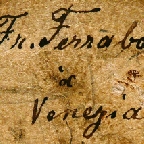 Fr. Ferrabo
à
Venezia